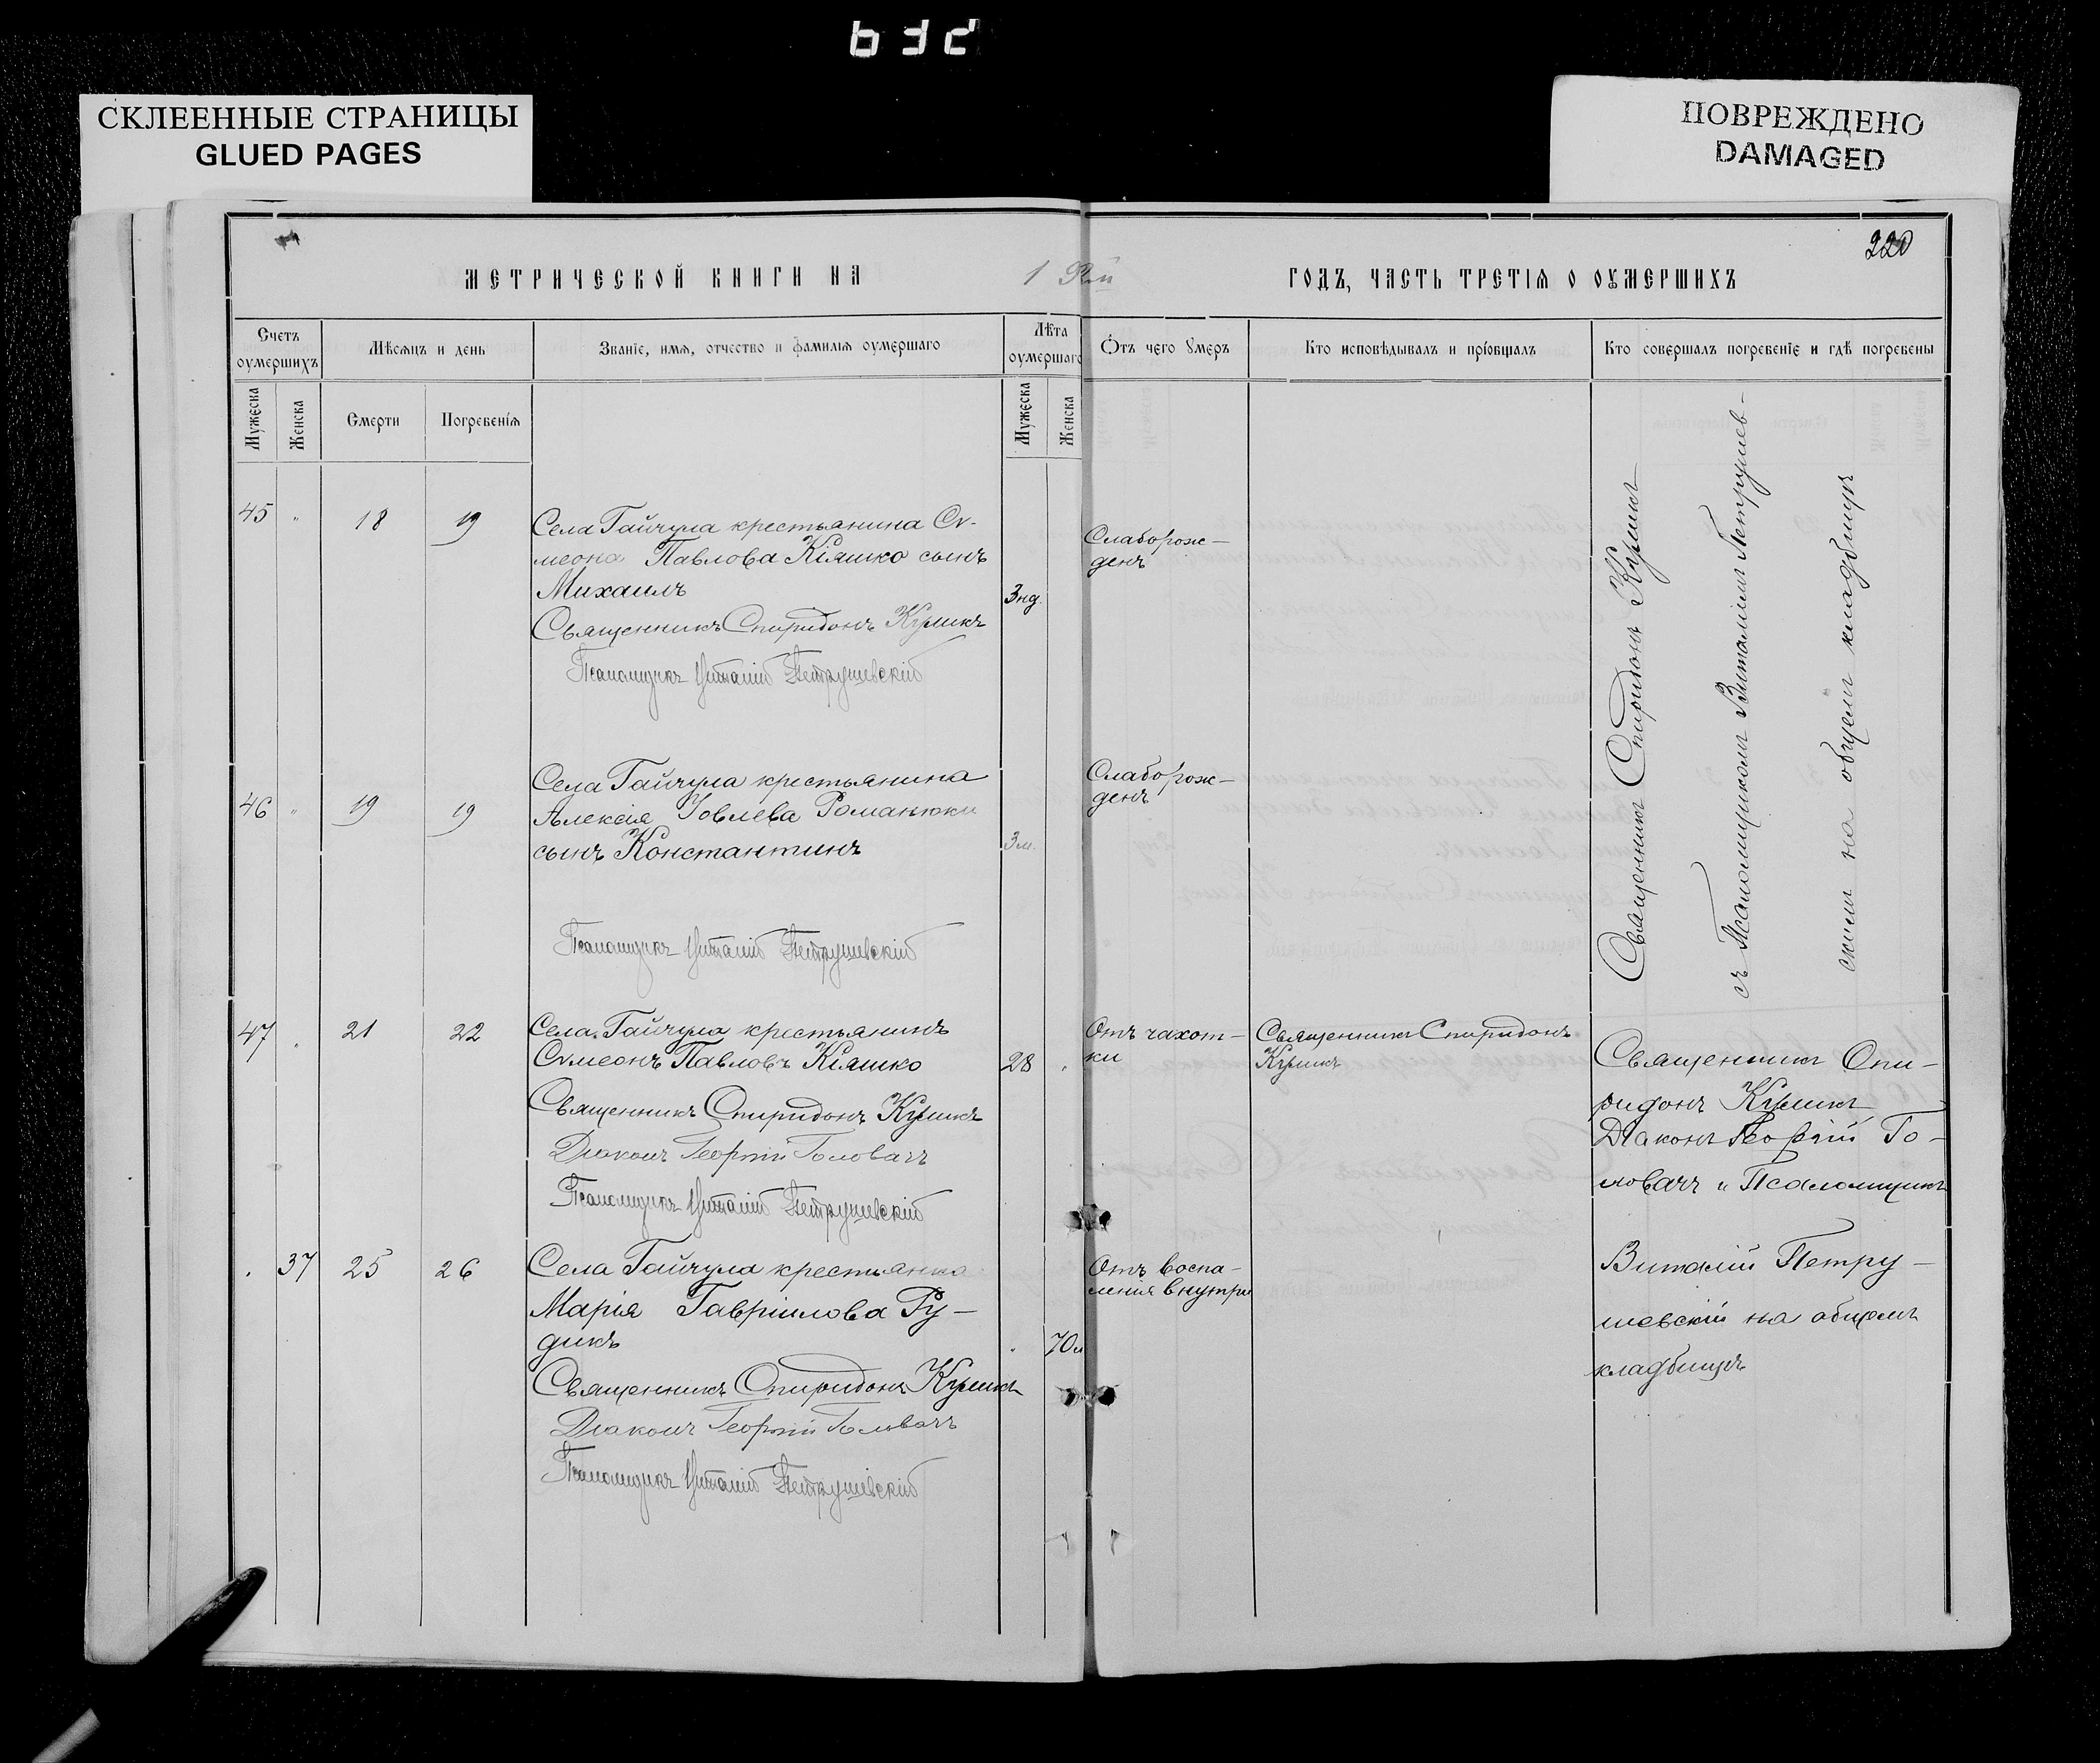 632
СКЛЕЕННЫЕ СТРАНИЦЫ
GLUED PAGES
ПОВРЕЖДЕНО
DAMAGED
220
МЕТРИЧЕСКОЙ КНИГИ НА
ГОДЪ, ЧАСТЬ ТРЕТІѦ О ОУМЕРШИХЪ
Счетъ оумершихъ
Мѣсѧцъ и день
Званіе, имѧ, отчество и фамиліѧ оумершаго
Лѣта оумершаго
Ѿтъ чегѡ оумеръ
Кто исповѣдывалъ и пріобщалъ
Кто совершалъ погребеніе и гдѣ погребены
Мужеска
Женска
Смерти
Погребеніѧ
Мужеска
Женска
45 " 18 19
Села Гайчула крестьянина Сѵ-
меона Павлова Кіяшко сынъ
Михаилъ
3 нд.
Священникъ Спиридонъ Куликъ
Псаломщикъ Виталій Петрушевскій
Слаборож-
денъ
Священникъ Спиридонъ Куликъ
съ Псаломщикомъ Виталіемъ Петрушев-
скимъ на общемъ кладбищѣ
46 " 19 19
Села Гайчула крестьянина
Алексія Іовлева Романюки
сынъ Константинъ
3 м.
Псаломщикъ Виталій Петрушевскій
Слаборож-
денъ
47 " 21 22
Села Гайчула крестьянинъ
Сѵмеонъ Павловъ Кіяшко
28
Священникъ Спиридонъ Куликъ
Діаконъ Георгій Головачъ
Псаломщикъ Виталій Петрушевскій
Отъ чахот-
ки
Священникъ Спиридонъ
Куликъ
Священникъ Спи-
ридонъ Куликъ
Діаконъ Георгій Го-
ловачъ и Псаломщикъ
Виталій Петру-
шевскій на общемъ
кладбищѣ
37 25 26
Села Гайчула крестьянка
Марія Гавріилова Ру-
дикъ
70 л
Священникъ Спиридонъ Куликъ
Діаконъ Георгій Головачъ
Псаломщикъ Виталій Петрушевскій
Отъ воспа-
ленія внутри